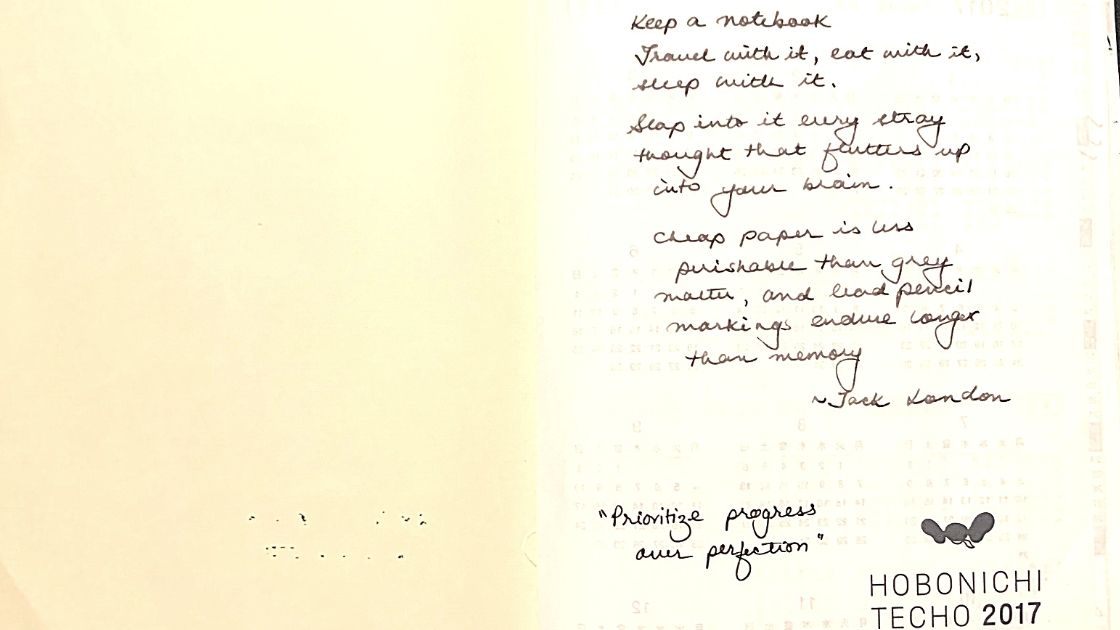 Keep a notebook
Travel with it, eat with it,
sleep with it.
Slap into it every stray
thought that flutters up
into your brain.
Cheap paper is less
perishable than grey
matter, and lead pencil
markings endure longer
than memory
~Jack London
"Prioritize progress
over perfection"
HOBONICHI
TECHO 2017